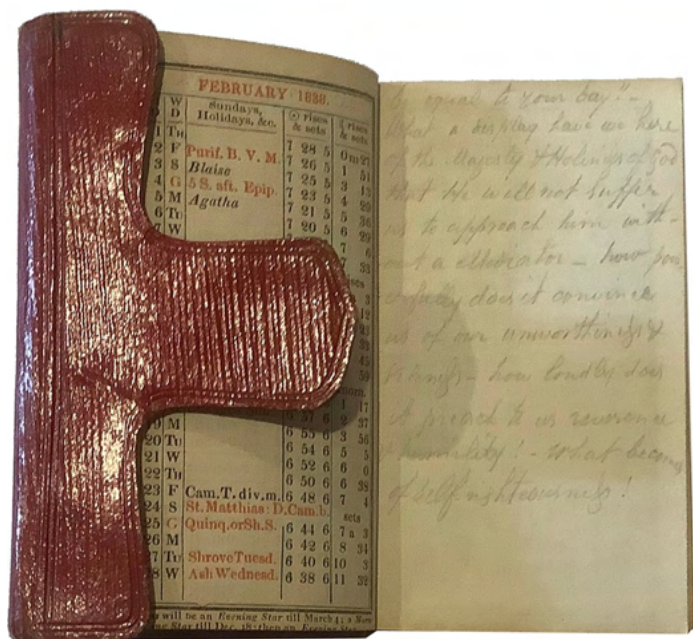 FEBRUARY 1838.
W D Sundays, Holidays, &c. ☉ rises & sets ☾ rises & sets
1 Th 7 28 5 0m27
2 F Purif. B. V. M. 7 26 5 1 51
3 S Blaise 7 25 5 3 13
4 G 5 S. aft. Epip. 7 23 5 4 29
5 M Agatha 7 21 5 5 36
6 Tu 7 20 5 6 29
7 W 7 6
7 33
3
12
1 17
M 6 57 6 2 37
20 Tu 6 55 6 3 56
21 W 6 54 6 5 5
22 Th 6 52 6 6 0
23 F Cam. T. div. m. 6 50 6 6 38
24 S St. Matthias: D. Cam. b. 6 48 6 7 4
25 G Quinq. or Sh. S. sets
26 M 6 44 6 7 a 3
27 Tu Shrove Tuesd. 6 42 6 8 31
28 W Ash Wednesd. 6 40 6 10 3
6 38 6 11 32
will be an Evening Star till March 4;
Star till Dec. 18: then an Evening Star
be equal to your day" –
What a display have we here
of the Majesty & Holiness of God
that He will not suffer
us to approach him with-
out a Mediator – how pow
erfully does it convince
us of our unworthiness &
– how loudly does
it preach to us reverence
& humility! – what becomes
of self righteousness!